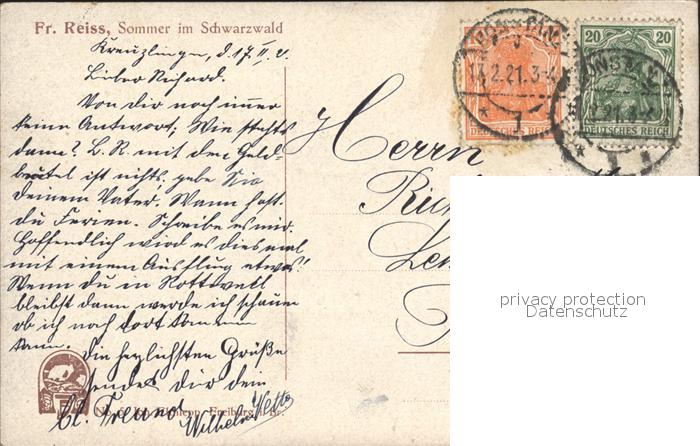 Fr. Reiss, Sommer im Schwarzwald
Kreuzlingen, d. 17. II.
Lieber Richard.
Von dir noch immer
keine Antwort; Wie stehts
dann? L. R. mit dem Geld-
beutel ist nichts, gebe Sie
deinem Vater. Wann hast
du Ferien. Schreibe es mir.
Hoffendlich wird es diesmal
mit einem Ausflug etwas!
Wenn du in Rottweil
bleibst dann werde ich schauen
ob ich nach dort kommen
kann.
Die herzlichsten Grüße
sendet dir dein
Freund Wilhelm
Freiburg i. Br.
Herrn
20
20
DEUTSCHES REICH
DEUTSCHES REICH
KONSTANZ
2.21.3-4
1
privacy protection
Datenschutz